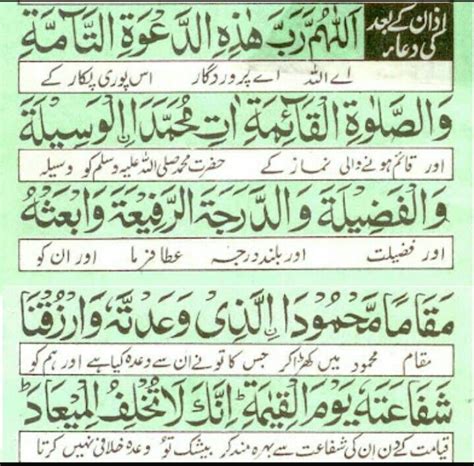 اذان کے بعد کی دعاء
اَللّٰهُمَّ رَبَّ هٰذِهِ الدَّعْوَةِ التَّآمَّةِ
اے اللہ اے پروردگار اس پوری پکار کے
وَالصَّلٰوةِ الْقَآئِمَةِ اٰتِ مُحَمَّدَ اِ۟لْوَسِيْلَةَ
اور قائم ہونے والی نماز کے حضرت محمد صلی اللہ علیہ وسلم کو وسیلہ
وَالْفَضِيْلَةَ وَالدَّرَجَةَ الرَّفِيْعَةَ وَابْعَثْهُ
اور فضیلت اور بلند درجہ عطا فرما اور ان کو
مَقَامًا مَّحْمُوْدَ اِ۟لَّذِىْ وَعَدْتَّهٗ وَارْزُقْنَا
مقام محمود میں کھڑا کر جس کا تو نے ان سے وعدہ کیا ہے اور ہم کو
شَفَاعَتَهٗ يَوْمَ الْقِيٰمَةِ ؕ اِنَّكَ لَا تُخْلِفُ الْمِيْعَادَ ؕ
قیامت کے دن ان کی شفاعت سے بہرہ مند کر بیشک تو وعدہ خلافی نہیں کرتا